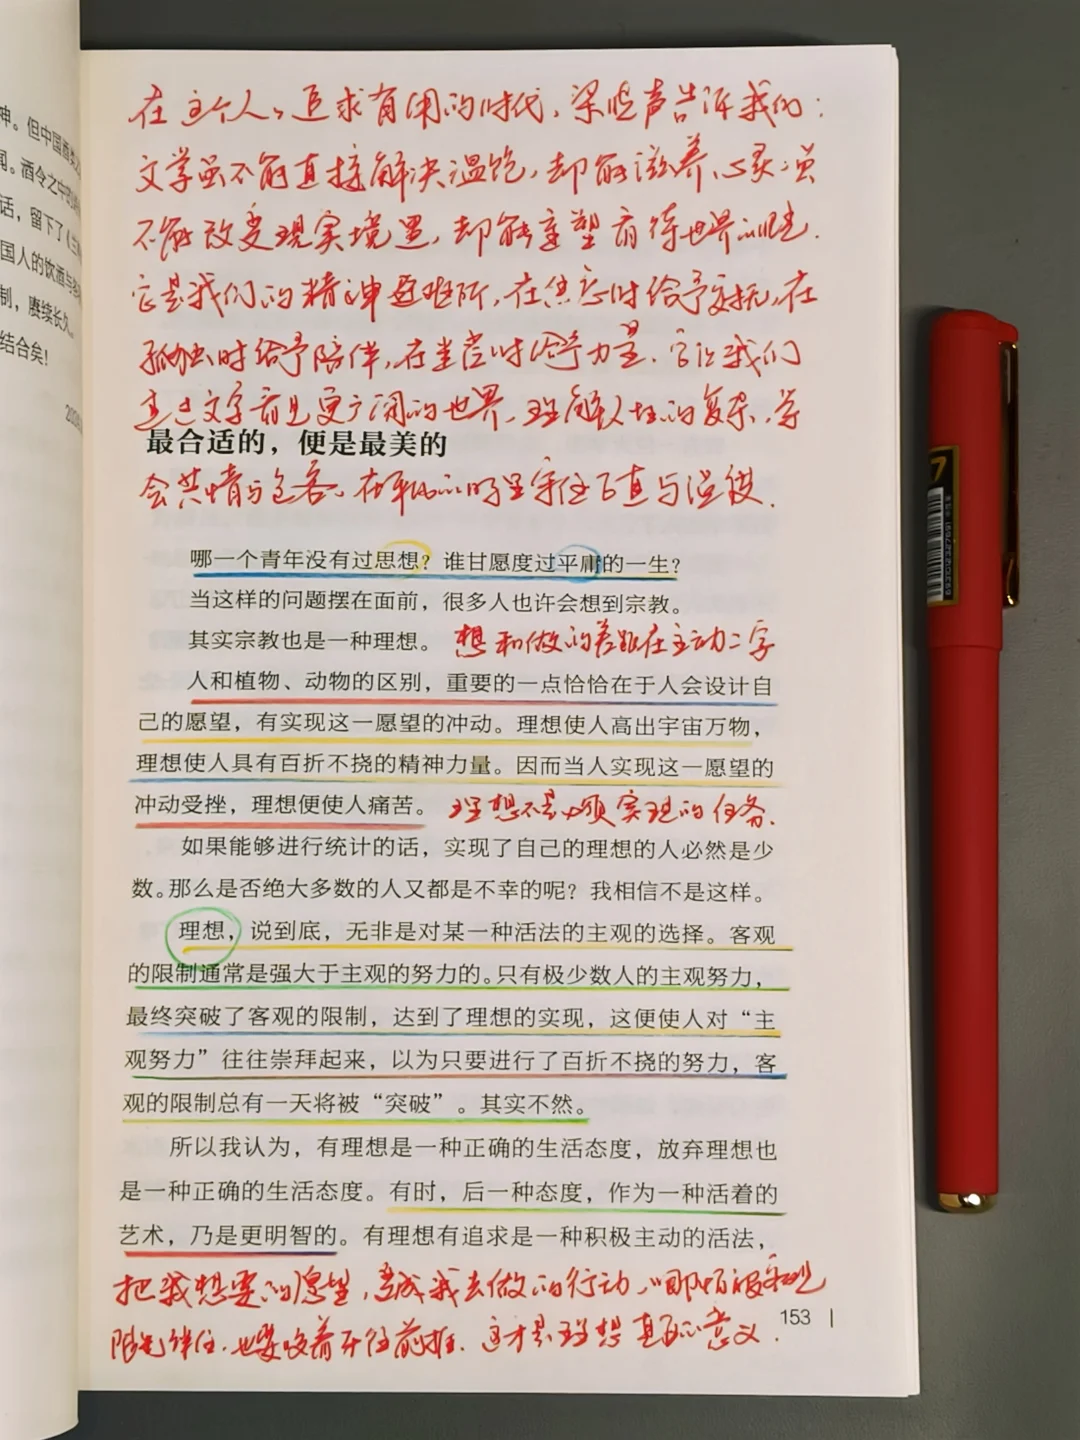 神。但中国酒类
闻。酒令之中的
话，留下了《三
国人的饮酒与
制，赓续长久。
结合矣！
在这个人人追求有用的时代，梁晓声告诉我们：
文学虽不能直接解决温饱，却能滋养心灵；虽
不能改变现实境遇，却能重塑看待世界的眼光.
它是我们的精神避难所，在焦虑时给予安抚，在
孤独时给予陪伴，在迷茫时给予力量.它让我们
透过文字看见更广阔的世界，理解人性的复杂，学
最合适的，便是最美的
会共情与包容。在平凡的明里守住正直与温良.
哪一个青年没有过思想？谁甘愿度过平庸的一生？
当这样的问题摆在面前，很多人也许会想到宗教。
其实宗教也是一种理想。 想和做的差距在主动二字
人和植物、动物的区别，重要的一点恰恰在于人会设计自
己的愿望，有实现这一愿望的冲动。理想使人高出宇宙万物，
理想使人具有百折不挠的精神力量。因而当人实现这一愿望的
冲动受挫，理想便使人痛苦。 理想不是必须实现的任务.
如果能够进行统计的话，实现了自己的理想的人必然是少
数。那么是否绝大多数的人又都是不幸的呢？我相信不是这样。
理想，说到底，无非是对某一种活法的主观的选择。客观
的限制通常是强大于主观的努力的。只有极少数人的主观努力，
最终突破了客观的限制，达到了理想的实现，这便使人对“主
观努力”往往崇拜起来，以为只要进行了百折不挠的努力，客
观的限制总有一天将被“突破”。其实不然。
所以我认为，有理想是一种正确的生活态度，放弃理想也
是一种正确的生活态度。有时，后一种态度，作为一种活着的
艺术，乃是更明智的。有理想有追求是一种积极主动的活法，
把我想要的愿望，变成我去做的行动，哪怕被客观
限制绊住.也要咬着牙往前推.这才是理想真正的意义.
153